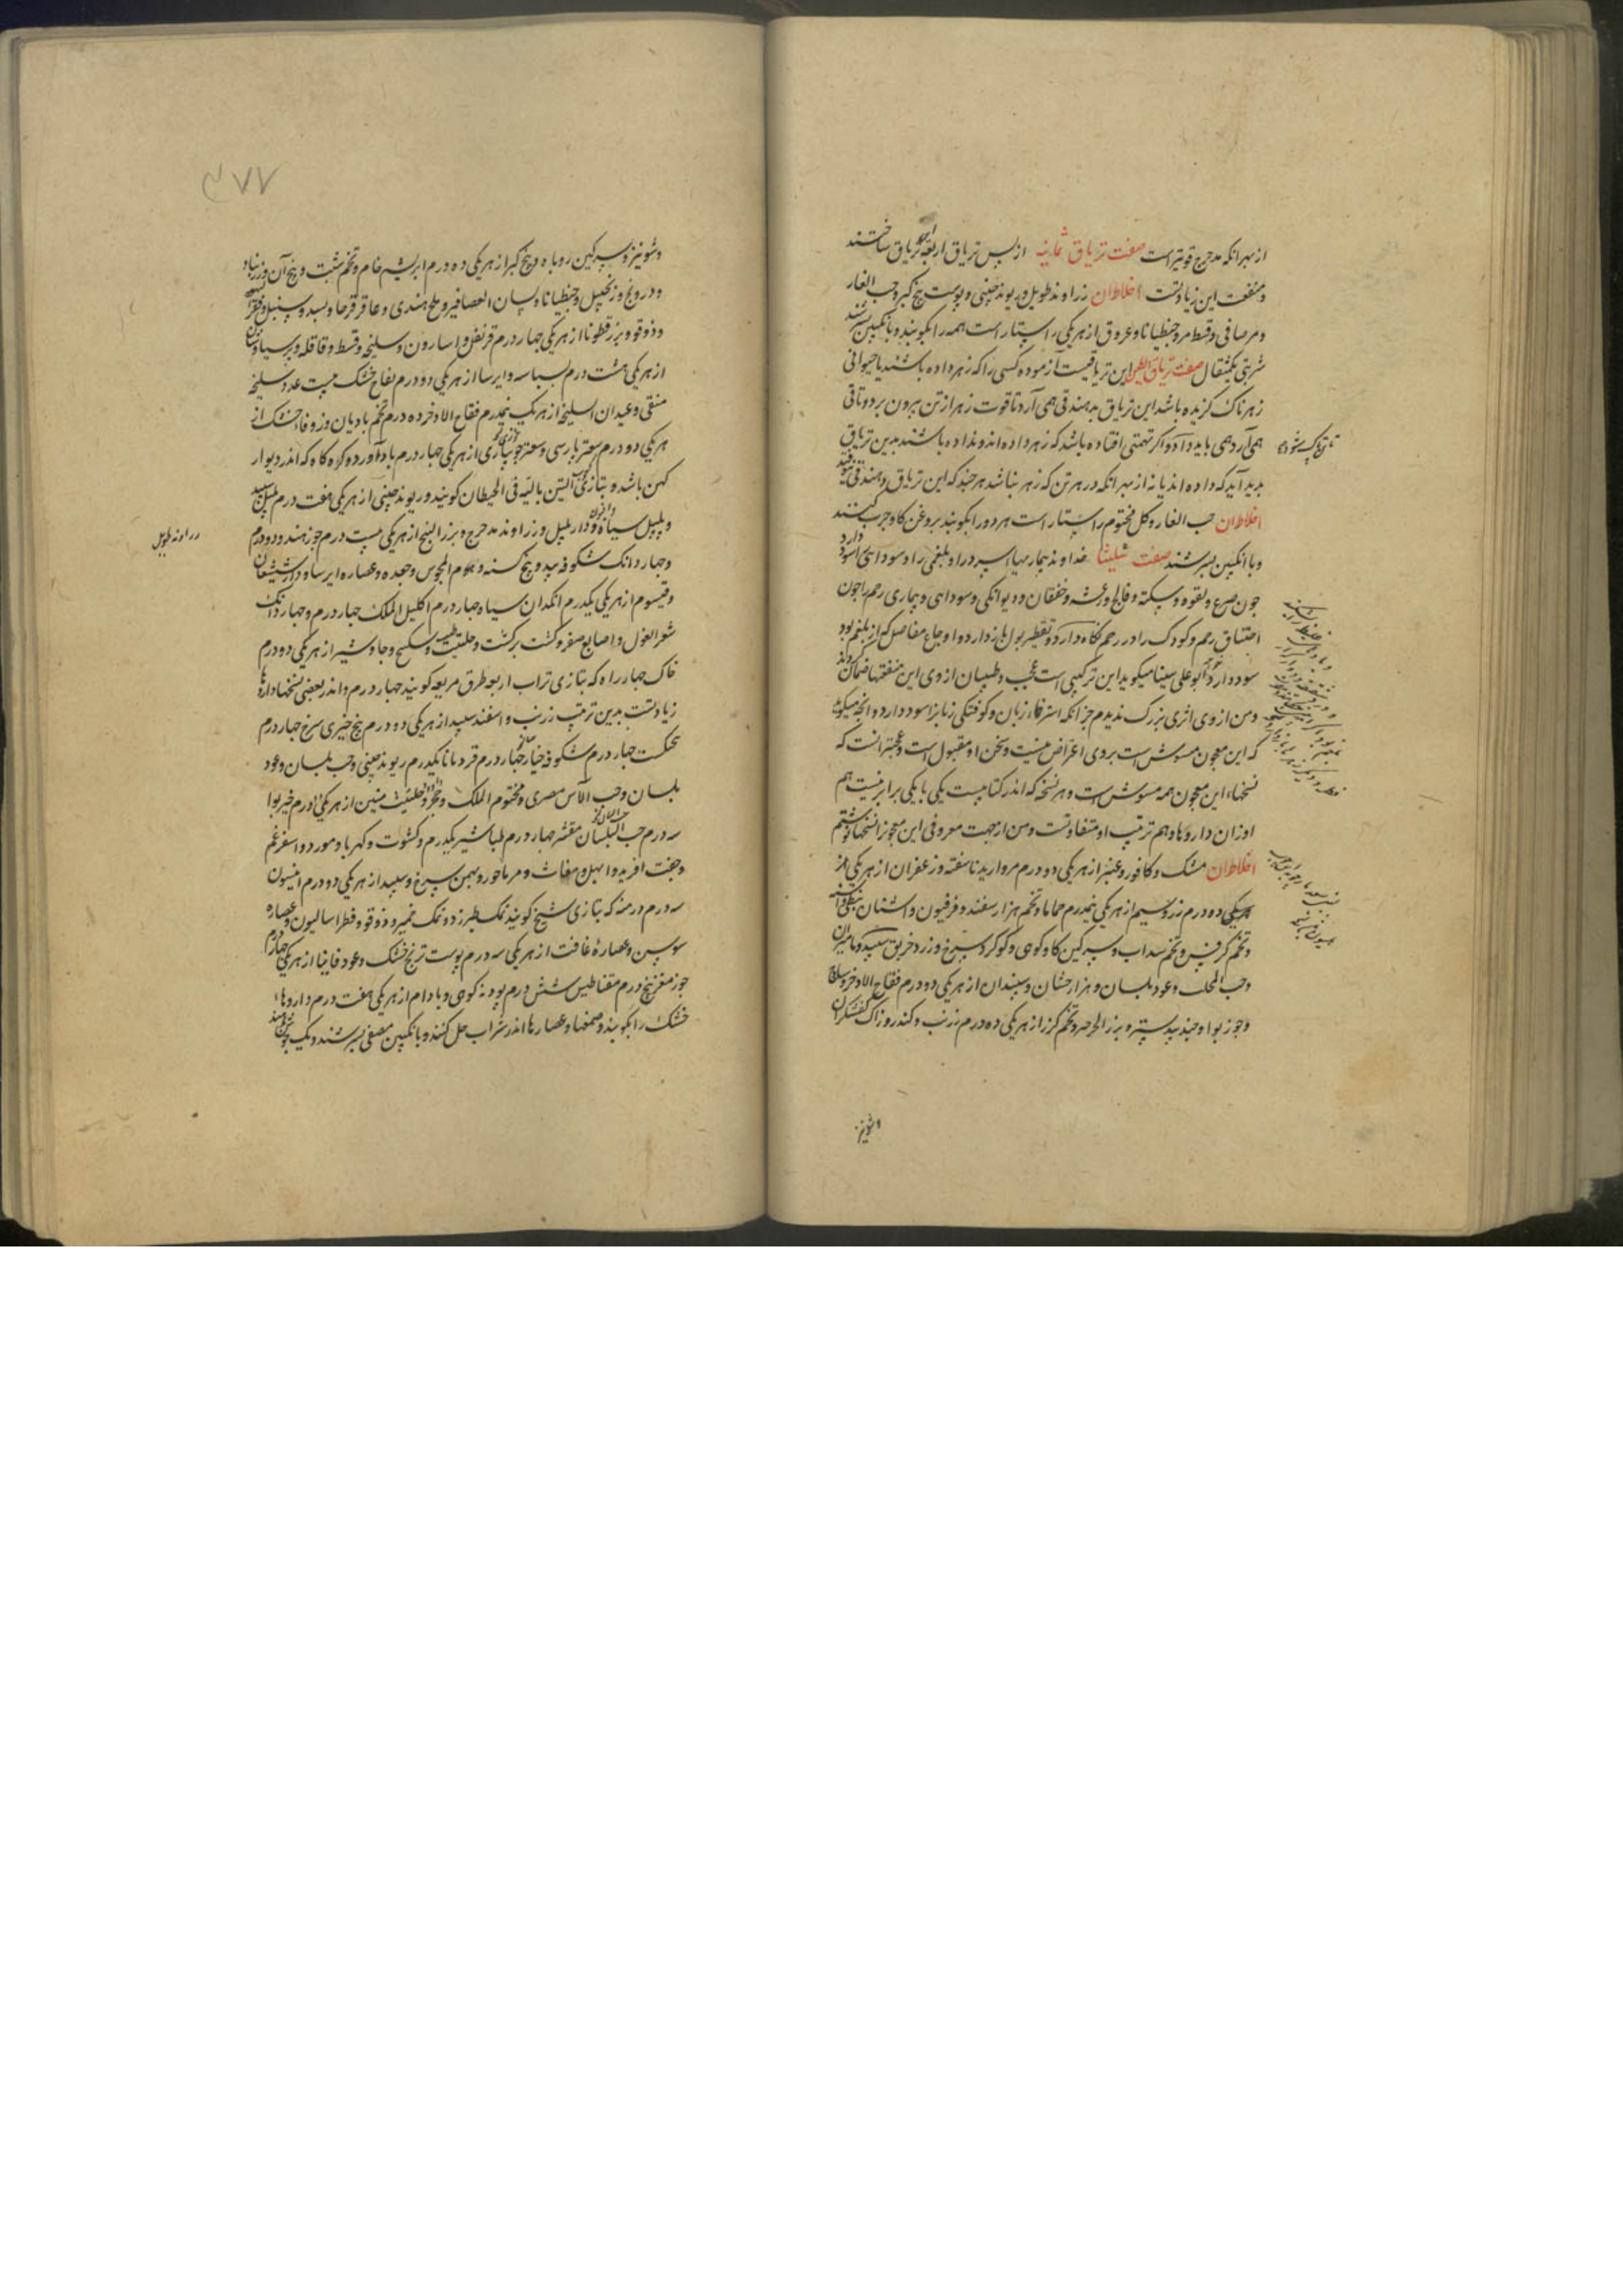 از بهر انکه مدحرج قویتر است صفت تریاق ثمانیه از پس تریاق اربعه این تریاق ساختند
و منفعت این زیادتست اخلاط آن زراوند طویل و ریوند چینی و پوست بیخ کبر و حب الغار
و مر صافی و قسط مر و جنطیانا و عروق از هر یکی راستار است همه را بکوبند و بانکبین بسرشند
شربتی یکمثقال صفت تریاق الطین این تریاقیست آزموده کسی را که زهر داده باشند یا حیوانی
زهرناک گزیده باشد این تریاق بدهند قی همی آرد تا قوت زهر از تن بیرون برد و تا قی
همی آرد همی باید داد و اگر تهمتی افتاده باشد که زهر داده اند و نداده باشند بدین تریاق
پدید آید که داده اند یا نه از بهر انکه در هر تن که زهر نباشد هرچند که این تریاق دهند قی نیوفتد
اخلاط آن حب الغار و کل مختوم راستار است هر دو را بکوبند بروغن کاو چرب کنند
و با انکبین بسرشند صفت شلیثا خداوند بیماریهاء سرد را و بلغمی را و سودایی را سود دارد
چون صرع و لقوه و سکته و فالج و رعشه و خفقان و دیوانکی و سودایی و بیماری رحم را چون
اختناق رحم و کودک را در رحم نکاه دارد و تقطیر بول باز دارد و اوجاع مفاصل که از بلغم بود
سود دارد ابو علی سینا میکوید این ترکیبی است عجب و طبیبان از وی این منفعتها ضمان کردند
و من از وی اثری بزرگ ندیدم جز انکه استرخاء زبان و کوفتکی زبانرا سود دارد و انچه میکوید
که این معجون مشوش است بر وی اعتراض نیست و سخن او مقبول است و عجبتر انست که
نسخهاء این معجون همه مشوش است و هر نسخه که اندر کتابیست یکی با یکی برابر نیست هم
اوزان داروها و هم ترتیب او متفاوتست و من از جهت معروفی این معجون نسخها نوشتم
اخلاط آن مشک و کافور و عنبر از هر یکی دو درم مروارید ناسفته و زعفران از هر یکی
ده درم زر و سیم از هر یکی نیمدرم حماما و تخم هزار سفند و فرفیون و اشنان نبطی
و تخم کرفس و تخم سداب و سرکین کاو کوهی و کوکرد سرخ و زرد و خربق سپید و مامیران
و حب المحلب و عود بلسان و هزار جشان و سپندان از هر یکی دو درم فقاح الاذخر
و جوز بوا و جند بیدستر و بزر الحرمل و تخم کزر از هر یکی ده درم زرنب و کندر و زاک کفشکران
و شونیز
۳۷۷
و شونیز و سرکین روباه و بیخ کبر از هر یکی ده درم ابریشم خام و تخم شبت و بیخ آن و زرنباد
و درونج و زنجبیل و جنطیانا و لسان العصافیر و ملح هندی و عاقرقرحا و بسد و سنبل
و دوقو و بزر قطونا از هر یکی چهار درم قرنفل و اسارون و سلیخه و قسط و قاقله و پرسیاوشان
از هر یکی هشت درم بسباسه و ایرسا از هر یکی دو درم تفاح خشک بیست عدد سلیخه
منقی و عیدان السلیخه از هر یک نیمدرم فقاح الاذخر ده درم تخم بادیان و زوفا خشک از
هر یکی دو درم سعتر پارسی و سعتر از هر یکی چهار درم بادآورد و کره کاه که اندر دیوار
کهن باشد و بتازی التین بالیه فی الحیطان کویند و ریوند چینی از هر یکی هفت درم پلپل سپید
و پلپل سیاه و دار پلپل و زراوند مدحرج و بزر البنج از هر یکی بیست درم جوز هند دو درم
و چهار دانک شکوفه بید و بیخ کسنه و هوم المجوس و جعده و عصاره ایرسا و دارشیشعان
و قیسوم از هر یکی یکدرم انکدان سیاه چهار درم اکلیل الملک چهار درم و چهار دانک
شعر الغول و اصابع صفر و کشت برکشت و حلتیت طیب و سکبینج و جاوشیر از هر یکی دو درم
خاک چهار راه که بتازی تراب اربعه طرق مربعه کویند چهار درم و اندر بعضی نسخها داروها
زیادتست بدین ترتیب زرنب و اسفند سپید از هر یکی دو درم بیخ خیری سرخ چهار درم
چهار درم شکوفه خیار چهار درم قردمانا یکدرم ریوند چینی و حب بلسان و عود
بلسان و حب الآس مصری و مختوم الملک و حلتیت منتن از هر یکی درم خیربوا
سه درم حب البلسان مقشر چهار درم طباشیر یکدرم و کشوث و کهربا و مورد و اسفرغم
و جفت افرید و ابهل و مغاث و مرماحور و بهمن سرخ و سپید از هر یکی دو درم انیسون
سه درم درمنه که بتازی شیح کویند نمک طبرزد و نمک خمیر و دوقو و فطراسالیون و عصاره
سوسن و عصارهٔ غافت از هر یکی سه درم پوست ترنج خشک و عود فاینا از هر یکی چهار درم
جوز مغز پنج درم مقناطیس شش درم پودنه کوهی و بادام از هر یکی هفت درم داروهاء
خشک را بکوبند و صمغها و عصارها اندر شراب حل کنند و بانکبین مصفی بسرشند و نیک